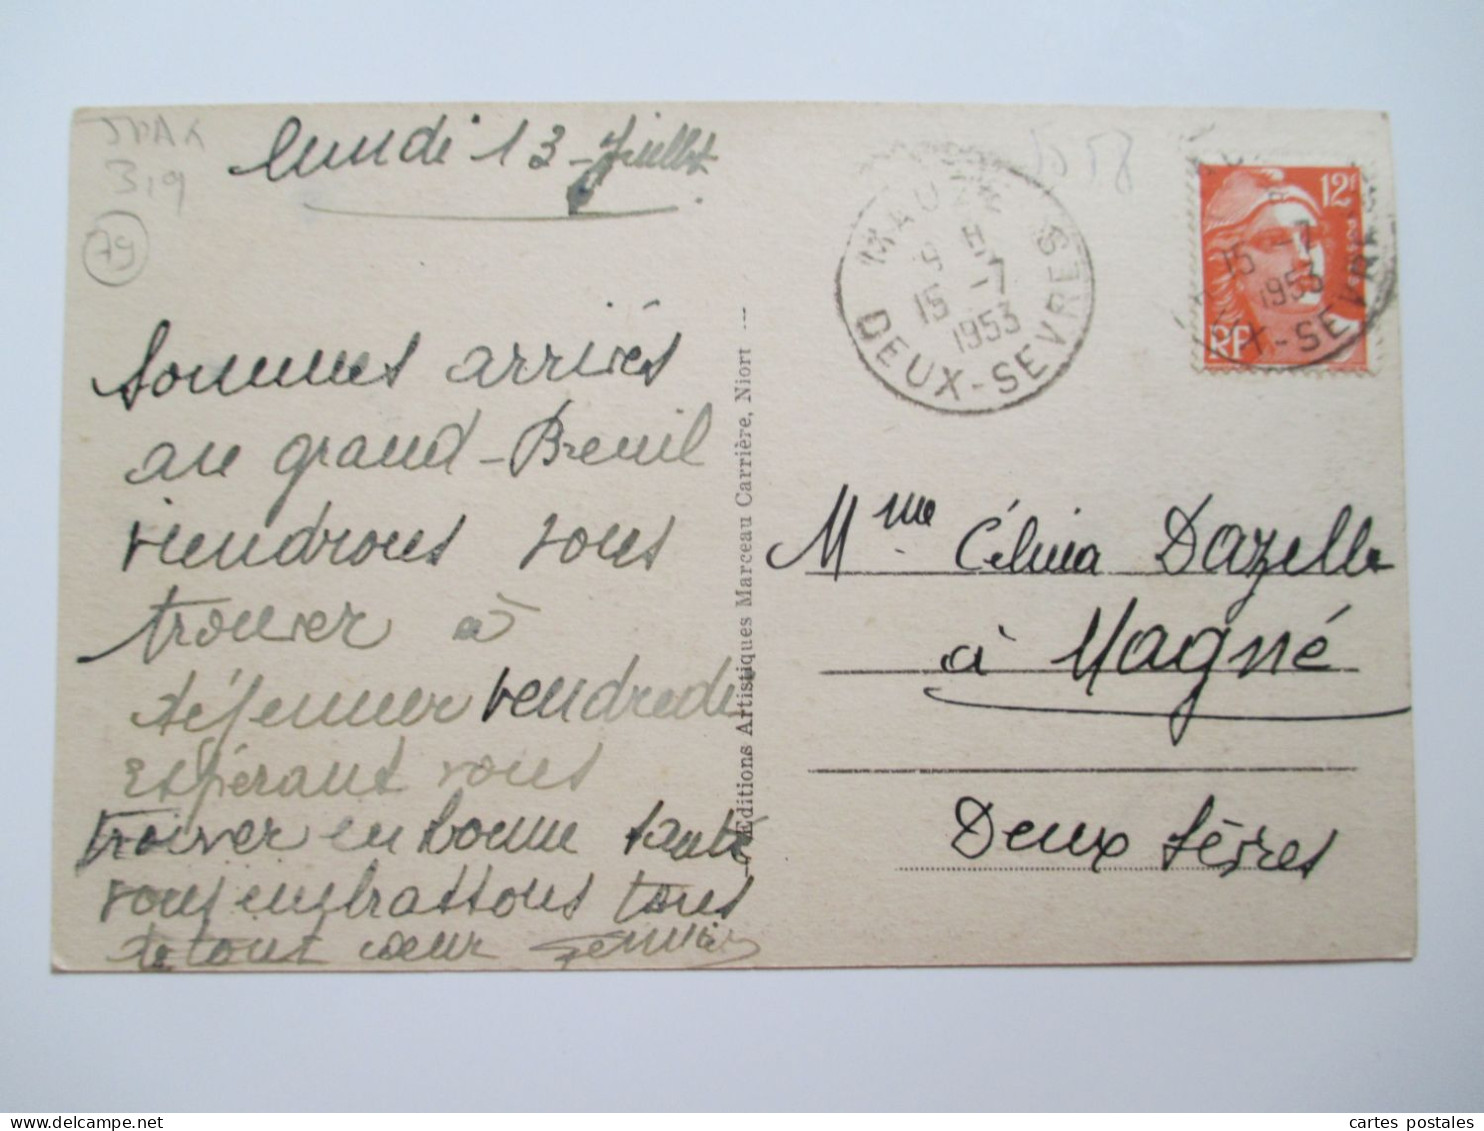 lundi 13 Juillet
3,9
79
Sommes arrivés
au grand-Breuil
viendrons vous
trouver à
déjeuner vendredi
Espérant vous
trouver en bonne santé
vous embrassons tous
de tout cœur
Editions Artistiques Marceau Carrière, Niort
MAUZE
9 H
15 -7
1953
DEUX-SEVRES
12F
RF
15 -7
1953
X-SEVRE
Mme Célina Dazelle
à Magné
Deux Sèvres
cartes postales